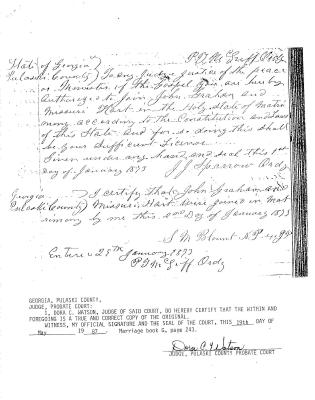 P. T. McGriff Ordy
State of Georgia
Pulaski County To any Judge Justice of the peace
or Minister of the Gospel You are hereby
Authorized to join John Graham and
Missouri Hart in the Holy State of Matri
mony according to the Constitution and Laws
of this State and for so doing this shall
be your Sufficient License
Given under my hand and seal this 1st
day of January 1873
J J Sparrow Ordy
Georgia I certify that John Graham and
Pulaski County Missouri Hart were joined in mat
rimony by me this Day of January 1873
S. M. Blount
Entered 28th January 1873
P T McGriff Ordy
GEORGIA, PULASKI COUNTY,
JUDGE, PROBATE COURT:
I, DORA C. WATSON, JUDGE OF SAID COURT, DO HEREBY CERTIFY THAT THE WITHIN AND
FOREGOING IS A TRUE AND CORRECT COPY OF THE ORIGINAL.
WITNESS, MY OFFICIAL SIGNATURE AND THE SEAL OF THE COURT, THIS 19th DAY OF
May 19 87. Marriage book G, page 243.
Dora C. Watson
JUDGE, PULASKI COUNTY PROBATE COURT